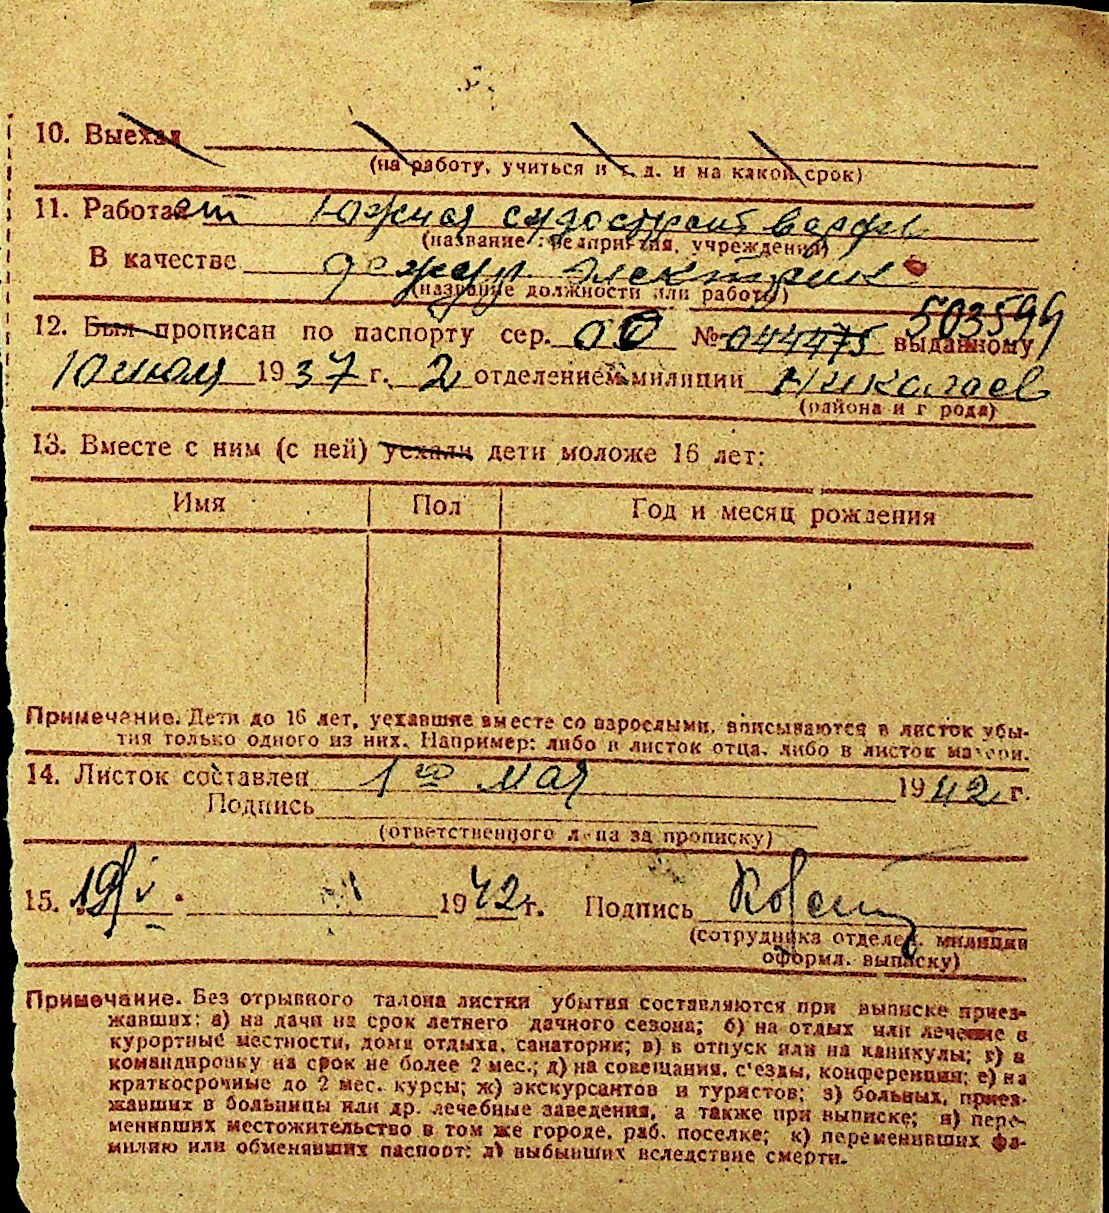 10. Выехал
(на работу, учиться и т. д. и на какой срок)
11. Работает Южная судостроит верфь
(название предприятия, учреждения)
В качестве дежур. электрик
(название должности или работы)
503594
12. Был прописан по паспорту сер. 00 № 044475 выданному
10 июля 1937 г. 2 отделением милиции Николаев
(района и города)
13. Вместе с ним (с ней) уехали дети моложе 16 лет:
Имя Пол Год и месяц рождения
Примечание. Дети до 16 лет, уехавшие вместе со взрослыми, вписываются в листок убы-
тия только одного из них. Например: либо в листок отца, либо в листок матери.
14. Листок составлен 1го мая 1942 г.
Подпись
(ответственного лица за прописку)
15. 19/V 1942 г. Подпись
(сотрудника отделен. милиции
оформл. выписку)
Примечание. Без отрывного талона листки убытия составляются при выписке приез-
жавших: а) на дачи на срок летнего дачного сезона; б) на отдых или лечение в
курортные местности, дома отдыха, санатории; в) в отпуск или на каникулы; г) в
командировку на срок не более 2 мес.; д) на совещания, с'езды, конференции; е) на
краткосрочные до 2 мес. курсы; ж) экскурсантов и туристов; з) больных, приез-
жавших в больницы или др. лечебные заведения, а также при выписке; и) пере-
менивших местожительство в том же городе, раб. поселке; к) переменивших фа-
милию или обменявших паспорт; л) выбывших вследствие смерти.